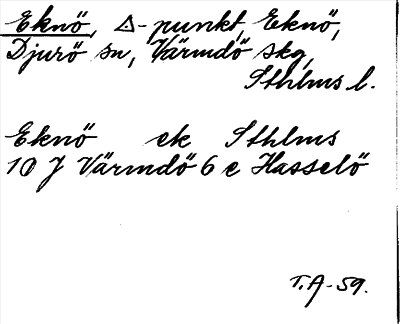 Eknö, Δ-punkt, Eknö,
Djurö sn, Värmdö skg,
Sthlms l.
Eknö ek Sthlms
10 J Värmdö 6 e Hasselö
T.A-59.